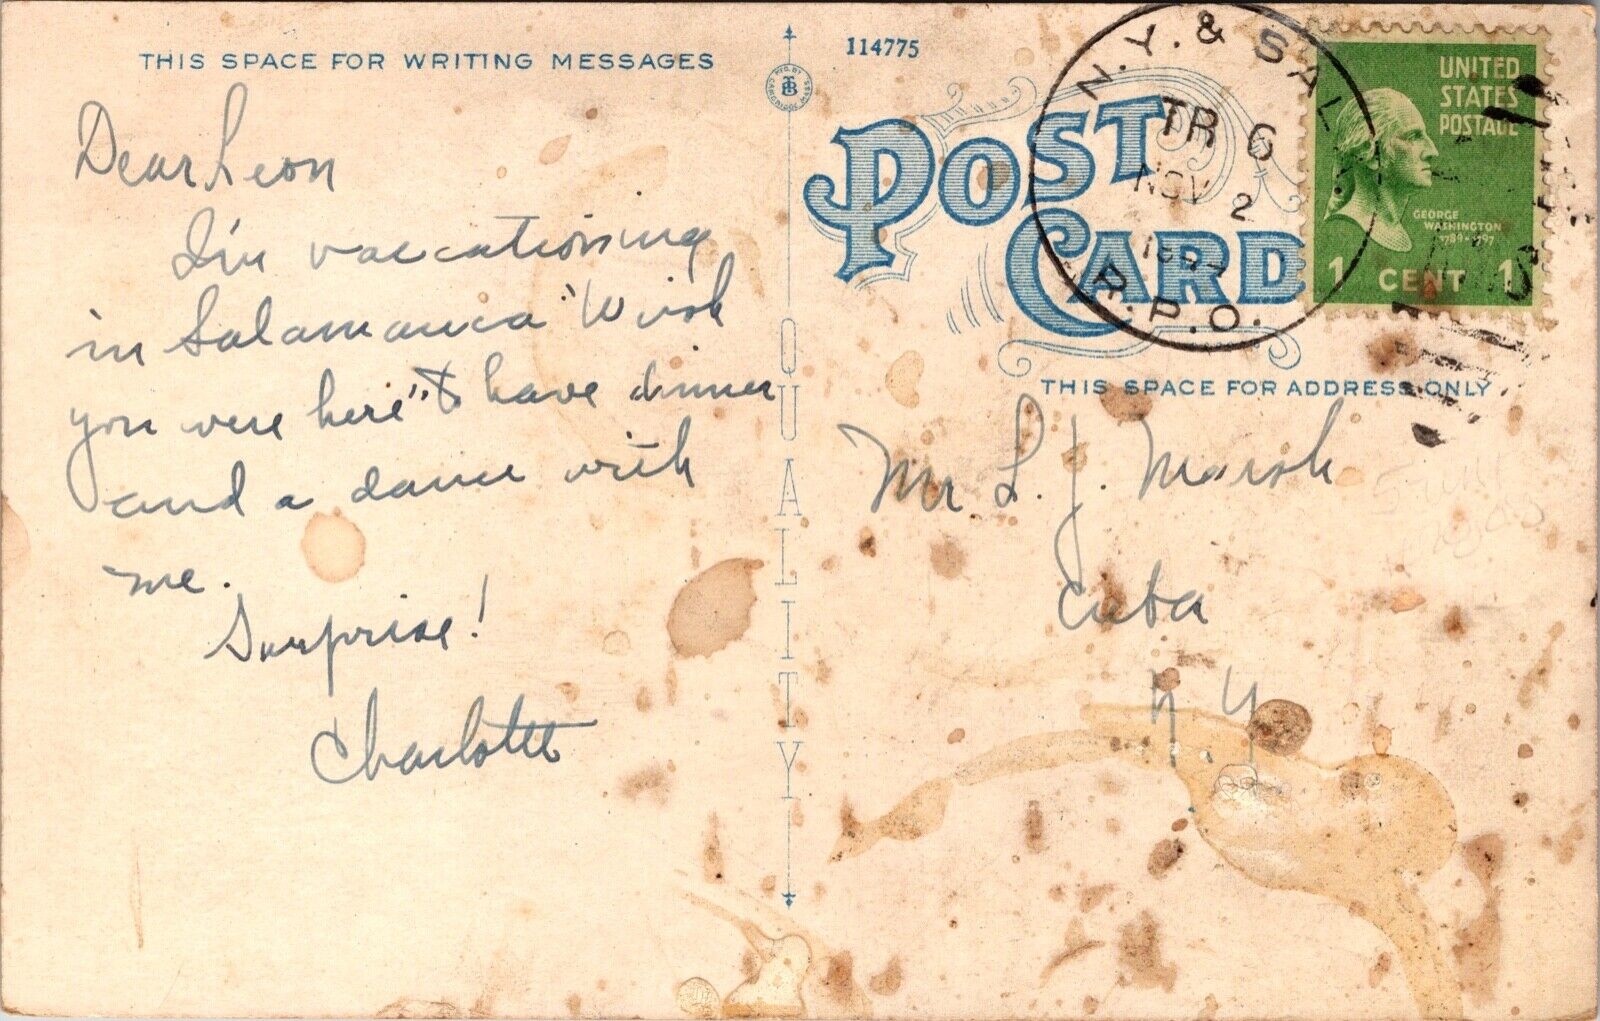 THIS SPACE FOR WRITING MESSAGES
Dear Leon
I'm vaccationing
in Salamanca "Wish
you were here" & have dinner
and a dance with
me.
Surprise!
Charlotte
MFD. BY
CAMBRIDGE, MASS.
QUALITY
114775
POST CARD
N.Y. & SAL
TR 6
NOV 2
R.P.O.
UNITED
STATES
POSTAGE
GEORGE
WASHINGTON
1789-1797
1 CENT 1
THIS SPACE FOR ADDRESS ONLY
Mr L. J. Marsh
Cuba
N.Y.